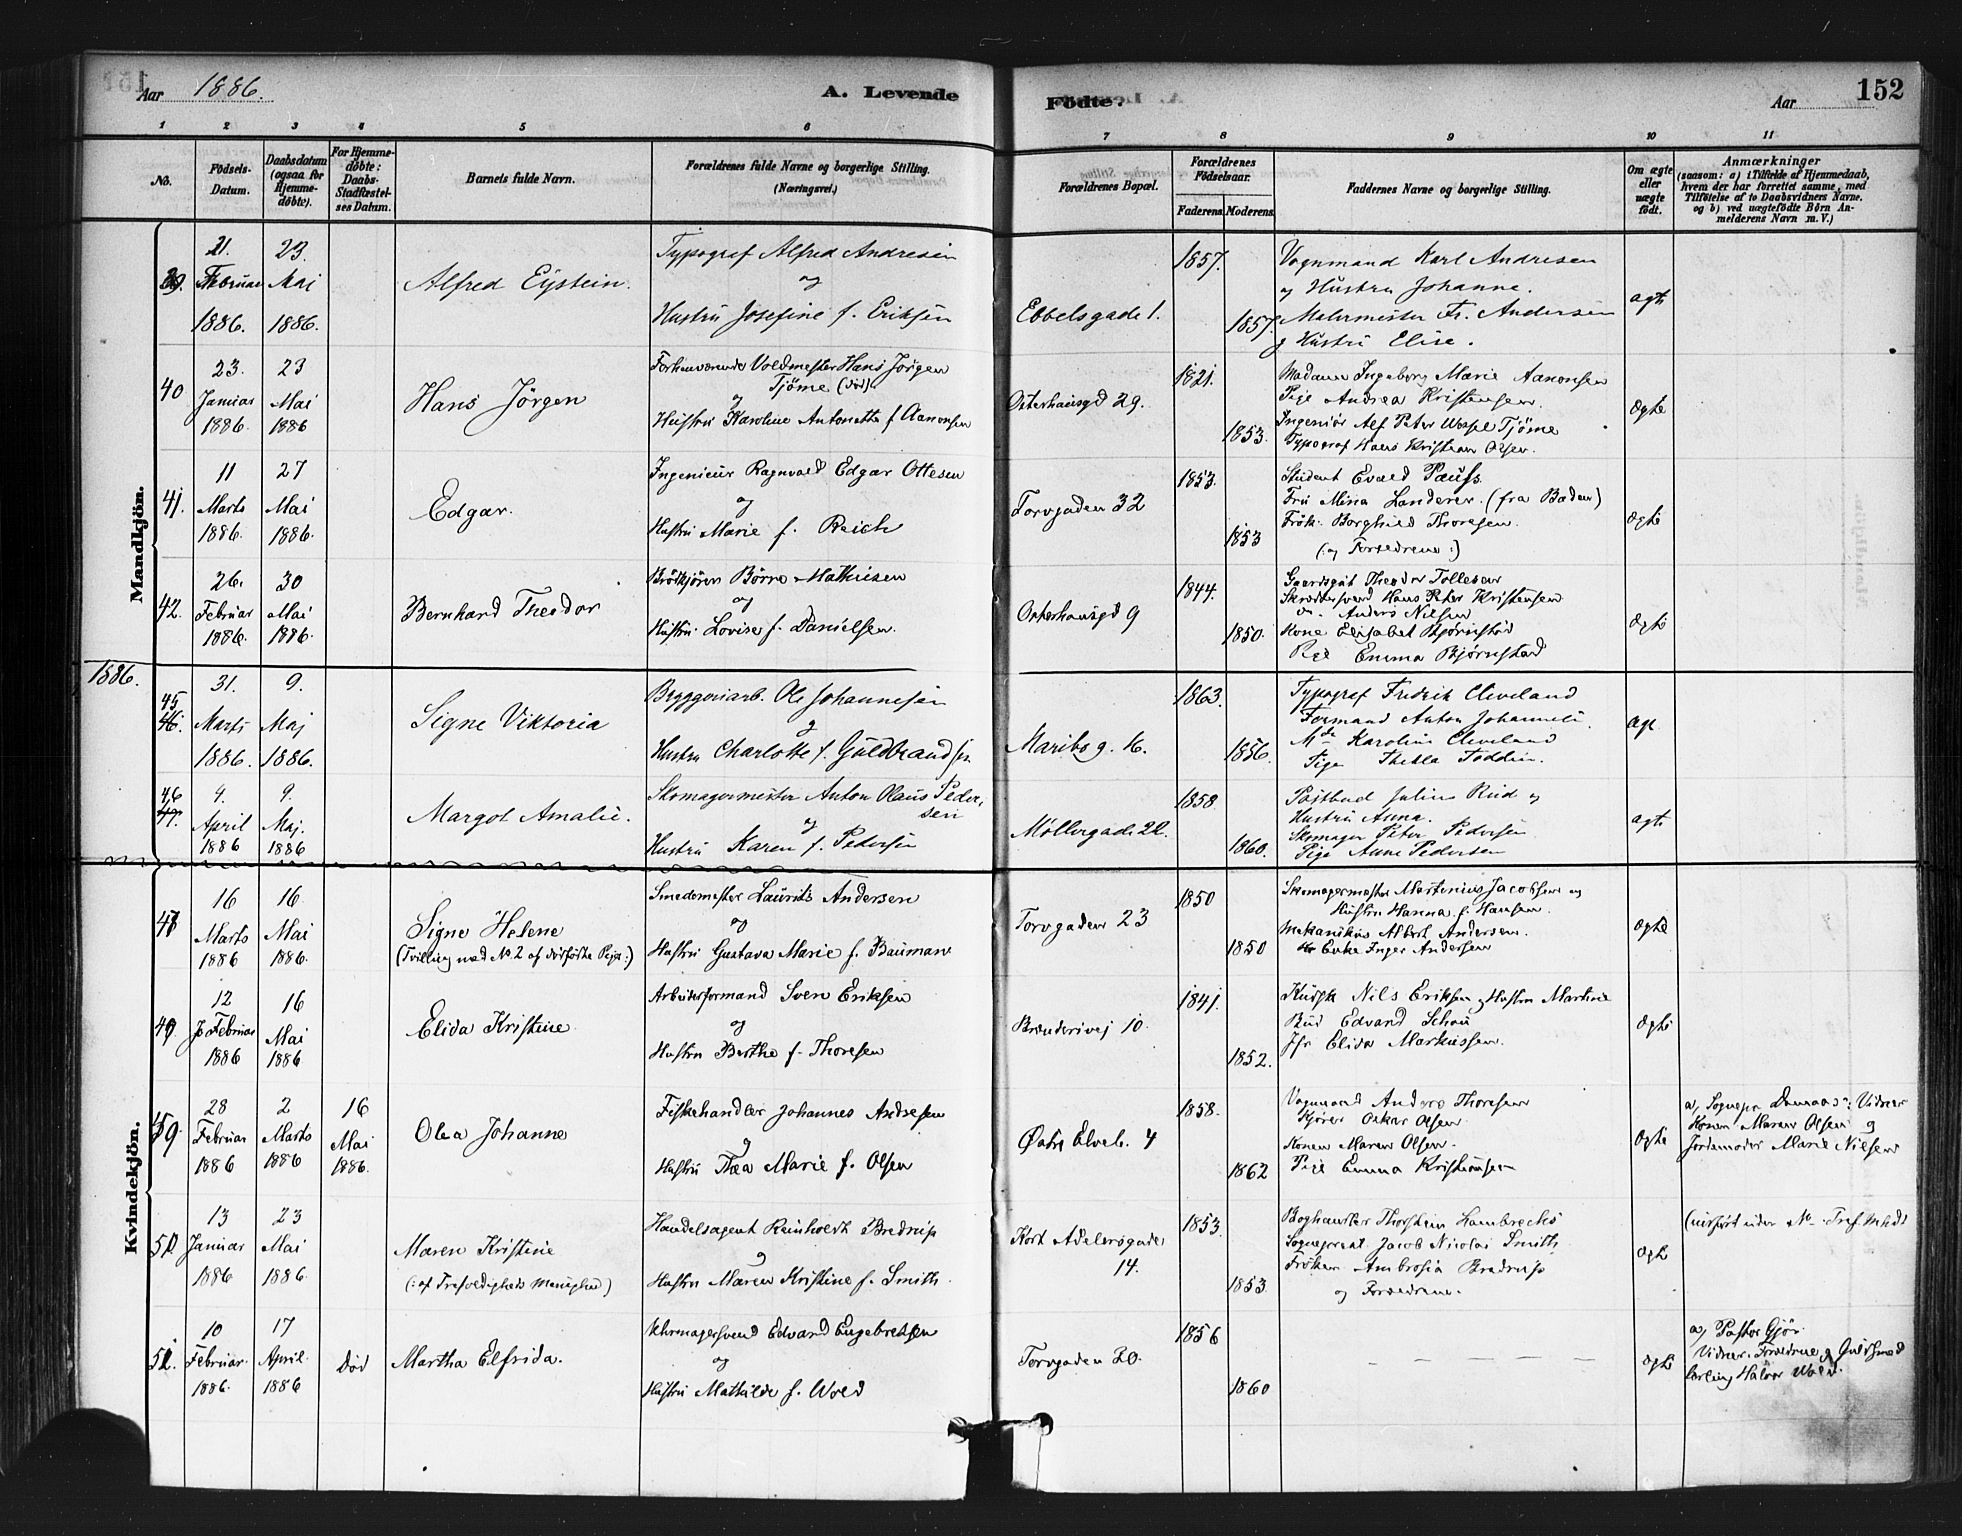 Aar 1886.
A. Levende
Födte.
Aar
152
1 2 3 4 5 6 7 8 9 10 11
No.
Födsels-Datum.
Daabsdatum (ogsaa for Hjemmedöbte).
For Hjemmedöbte: Daabs-Stadfæstelses Datum.
Barnets fulde Navn.
Forældrenes fulde Navne og borgerlige Stilling.
(Næringsvei.)
Forældrenes Bopæl.
Forældrenes Födselsaar.
Faderens. Moderens.
Faddernes Navne og borgerlige Stilling.
Om ægte eller uægte födt.
Anmærkninger
(saasom: a) i Tilfælde af Hjemmedaab, hvem der har forrettet samme, med Tilföielse af to Daabsvidners Navne. og b) ved uægtefödte Börn Anmelderens Navn m. V.)
Mandkjön.
39. 21. Februar 1886. 23. Mai 1886.
Alfred Eystein.
Typograf Alfred Andresen
og
Hustru Josefine f. Eriksen
Ebbelsgade 1.
1857.
1857.
Vognmand Karl Andresen
og Hustru Johanne.
Malermester Fr. Andersen
og Hustru Elise.
ægte
40 23. Januar 1886. 23 Mai 1886
Hans Jörgen
Forhenværende Voldmester Hans Jörgen
Tjöme (död)
og
Hustru Karoline Antonette f. Aanonsen
Osterhausgd 29.
1821.
1853.
Madame Ingeborg Marie Aanonsen
Pige Andrea Kristensen.
Ingeniör Alf Peter Wessel Tjöme
Typograf Hans Kristian Olsen.
Ægte
41. 11 Marts 1886. 27 Mai 1886.
Edgar.
Ingenieur Ragnvald Edgar Ottesen
og
Hustru Marie f. Reich
Torvgaden 32
1853.
1853
Student Evald Pauss.
Fru Mina Landerer. (fra Baden)
Frök. Borghild Thoresen.
(: og Forældrene :)
Ægte
42. 26. Februar 1886. 30 Mai 1886.
Bernhard Theodor
Brödkjörer Börre Mathisen
og
Hustru Lovise f. Danielsen.
Osterhausgd 9
1844.
1850.
Gaardsgut Theodor Tollesen
Skræddersvend Hans Peter Kristensen
Do. Anders Nilsen
Kone Elisabet Bjørnstad
Pige Emma Bjørnstad
Ægte
1886.
45 46. 31. Marts 1886. 9. Maj 1886.
Signe Viktoria
Bryggeriarb. Ole Johannesen
og
Hustru Charlotte f. Guldbrandsen.
Maribog. 16.
1863.
1856.
Typograf Fredrik Cleveland
Formand Anton Johannes
Mde Karoline Cleveland
Pige Thekla
46 47. 4. April 1886 9. Maj. 1886
Margot Amalie.
Skomagermester Anton Olaus Peder-
sen
og
Hustru Karen f. Pedersen
Møllergade 22.
1858
1860.
Postbud Julius Rud og
Hustru Anna.
Skomager Peter Pedersen
Pige Anne Pedersen
ægte
Kvindekjön.
16 Marts 1886 16. Mai 1886.
Signe Helene
(Tvilling med No 2 af dödfödte Piger:)
Smedemester Laurits Andersen
og
Hustru Gustava Marie f. Bauman
Torvgaden 23
1850
1850
Skomagermester Martinius Jacobsen og
Hustru Hanna f. Hansen.
Mekanikus Albert Andersen.
Enke Inger Andersen
Ægte
12 Februar 1886 16 Mai 1886
Elida Kristine
Arbeidsformand Sven Eriksen
og
Hustru Berthe f. Thoresen
Brenderivej 10.
1841.
1852.
Kusk Nils Eriksen og Hustru Martine
Bud Edvard Schou
Jfr Elida Markussen.
Ægte
28 Februar 1886 2 Marts 1886 16 Mai 1886.
Olea Johanne
Fiskehandler Johannes Andresen
og
Hustru Thea Marie f. Olsen
Østre Elveb. 4
1858.
1862
Vognmand Anders Thoresen
Kjörer Oskar Olsen
Konen Maren Olsen.
Pige Emma Kristiansen
Ægte
a) Sognepr. Damaas: Vidner
Konen Maren Olsen og
Jordemoder Marie Nielsen
13 Januar 1886 23 Mai 1886.
Maren Kristine
(: af Trefoldigheds Menighed)
Handelsagent Reinholdt Bredrup
og
Hustru Maren Kristine f. Smith.
Kort Adelersgade
14.
1853.
1853
Boghandler Thorstein Lambrechts
Sogneprest Jacob Nicolai Smith
Fröken Ambrosia Bredrup
og Forældrene.
Ægte
10 Februar. 1886. 17 April. 1886 Död
Martha Elfrida.
Uhrmagersvend Edvard Engebretsen
og
Hustru Mathilde f. Wold
Torvgaden 20.
1856
1860
Ægte
a) Pastor Gjör
Vidner: Forældrene og Guldsmed
lærling Halvor Wold.